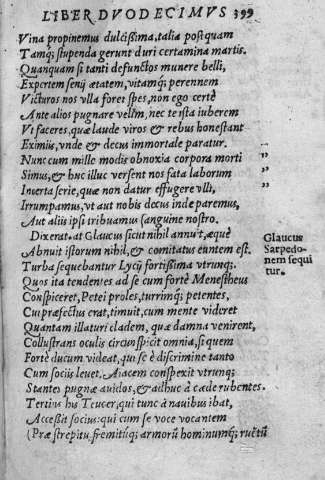 LIBER DVODECIMVS 399
Vina propinemus dulcißima, talia postquam
Tamq; stupenda gerunt duri certamina martis.
Quanquam si tanti defunctos munere belli,
Expertem senij ætatem, vitamq; perennem
Victuros nos vlla foret spes, non ego certè
Ante alios pugnare velim, nec te ista iuberem
Vt faceres, quæ laude viros & rebus honestant
Eximijs, vnde & decus immortale paratur.
Nunc cum mille modis obnoxia corpora morti „
Simus, & huc illuc versent nos fata laborum „
Incerta serie, quæ non datur effugere vlli, „
Irrumpamus, vt aut nobis decus inde paremus,
Aut aliis ipsi tribuamus sanguine nostro.
Dixerat. at Glaucus sicut nihil annuit, æquè
Abnuit istorum nihil, & comitatus euntem est.
Glaucus
Sarpedo-
nem sequi
tur.
Turba sequebantur Lycij fortißima vtrunq;.
Quos ita tendentes ad se cum fortè Menestheus
Conspiceret, Petei proles, turrimq; petentes,
Cui præfectus erat, timuit, cum mente videret
Quantam illaturi cladem, quæ damna venirent,
Collustrans oculis circunspicit omnia, si quem
Fortè ducum videat, qui se è discrimine tanto
Cum sociis leuet. Aiacem conspexit vtrunq;
Stantes pugnæ auidos, & adhuc à cæde rubentes.
Tertius his Teucer, qui tunc à nauibus ibat,
Acceßit socius: qui cum se voce vocantem
(Præ strepitu, fremituq; armorũ hominumq; ruentũ